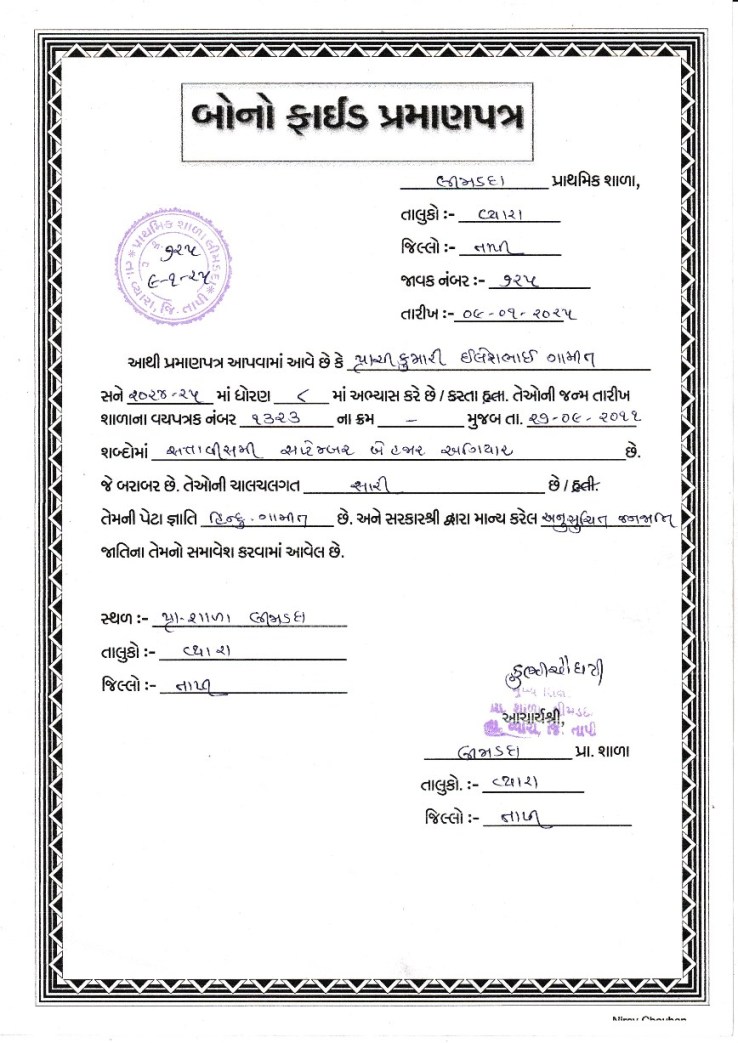 બોનો ફાઈડ પ્રમાણપત્ર
લીમડદા પ્રાથમિક શાળા,
તાલુકો :- વ્યારા
જિલ્લો :- તાપી
જાવક નંબર :- ૧૨૫
તારીખ :- ૦૯-૦૧-૨૦૨૫
પ્રાથમિક શાળા લીમડદા * તા. વ્યારા, જિ. તાપી *
૧૨૫
૯-૧-૨૫
આથી પ્રમાણપત્ર આપવામાં આવે છે કે પ્રાચીકુમારી ઈલેશભાઈ ગામીત
સને ૨૦૨૪-૨૫ માં ધોરણ ૮ માં અભ્યાસ કરે છે / કરતા હતા. તેઓની જન્મ તારીખ
શાળાના વયપત્રક નંબર ૧૩૨૩ ના ક્રમ - મુજબ તા. ૨૭-૦૯-૨૦૧૧
શબ્દોમાં સત્તાવીસમી સપ્ટેમ્બર બે હજાર અગિયાર છે.
જે બરાબર છે. તેઓની ચાલચલગત સારી છે / હતી.
તેમની પેટા જ્ઞાતિ હિન્દુ-ગામીત છે. અને સરકારશ્રી દ્વારા માન્ય કરેલ અનુસુચિત જનજાતિ
જાતિના તેમનો સમાવેશ કરવામાં આવેલ છે.
સ્થળ :- પ્રા-શાળા લીમડદા
તાલુકો :- વ્યારા
જિલ્લો :- તાપી
પ્રા. શાળા લીમડદા
આચાર્યશ્રી,
તા. વ્યારા, જિ. તાપી
લીમડદા પ્રા. શાળા
તાલુકો. :- વ્યારા
જિલ્લો :- તાપી